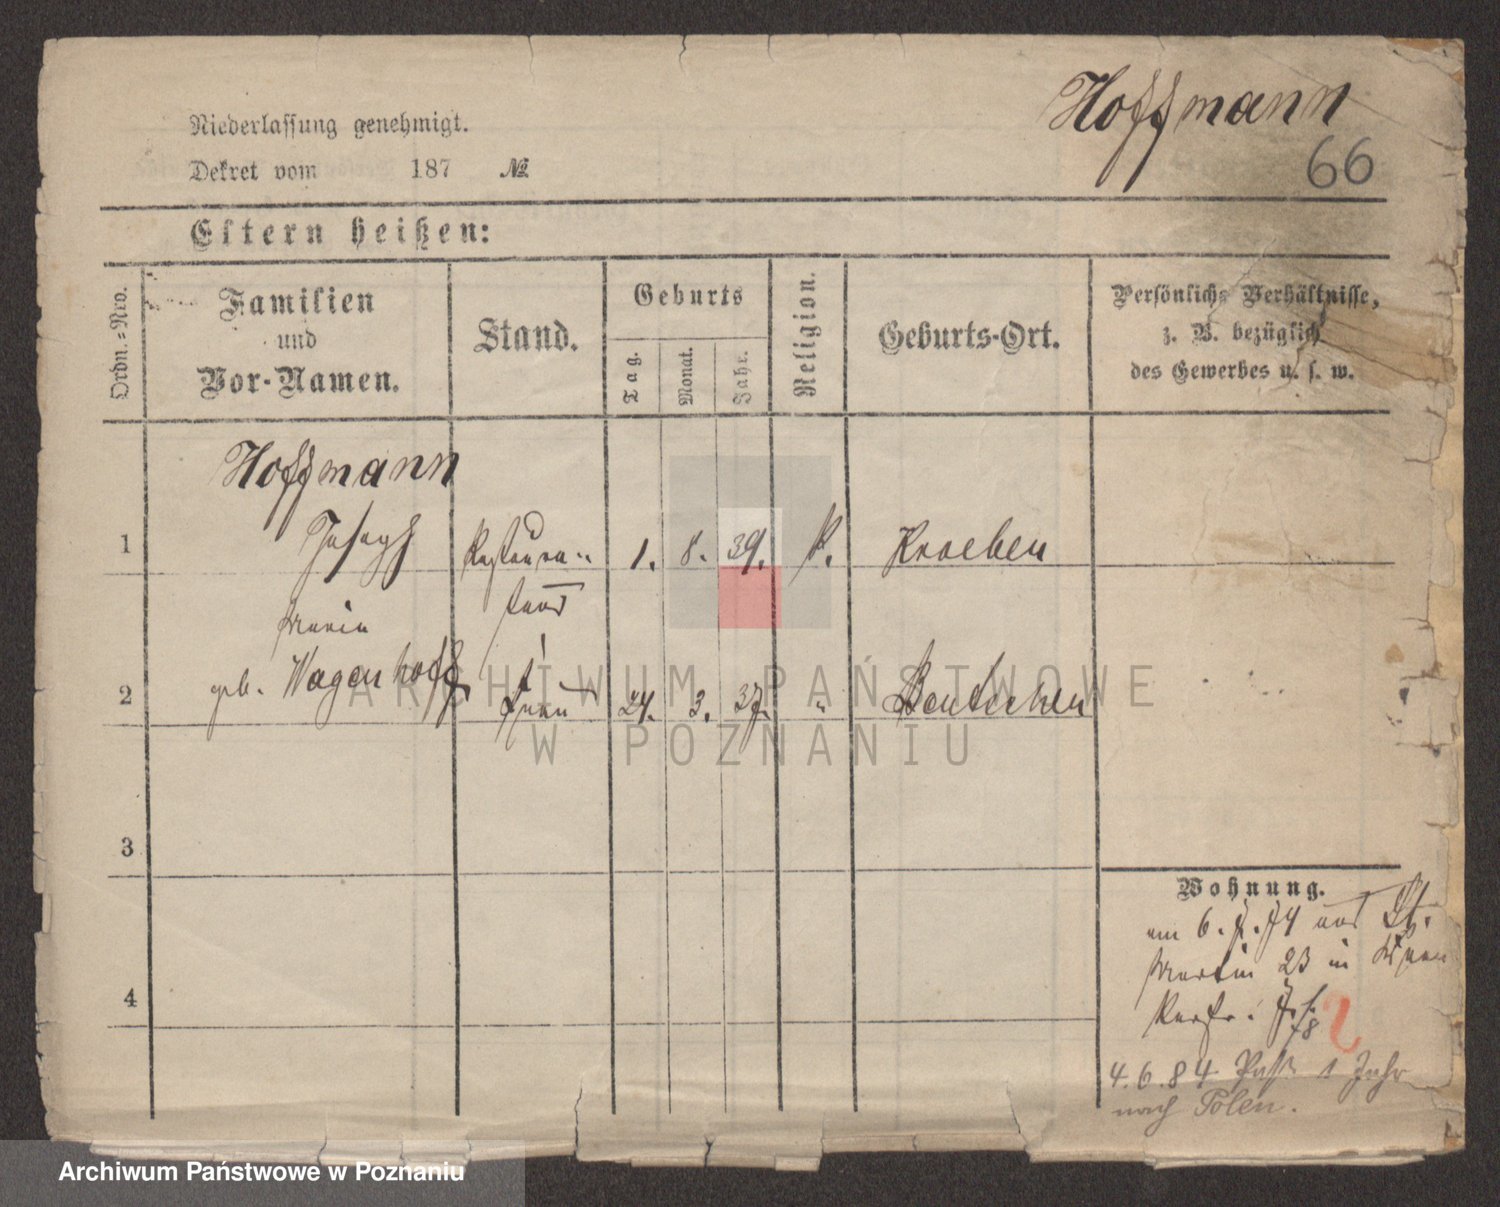 Hoffmann
66
Niederlassung genehmigt.
Dekret vom 187 №
Eltern heißen:
Ordn.-Nro.
Familien
und
Vor-Namen.
Stand.
Geburts
Tag.
Monat.
Jahr.
Religion.
Geburts-Ort.
Persönliche Verhältnisse,
z. B. bezüglich
des Gewerbes u. s. w.
Hoffmann
1 Joseph Restaura- 1. 8. 39. k. Kroeben
teur
Maria
2 geb. Wagenhoff Frau 24. 3. 37. " Bentschen
3
4
Wohnung.
am 6. 74 aus St.
Martin 23 in
4.6.84 Paß 1 Jahr
nach Polen.
ARCHIWUM PAŃSTWOWE
W POZNANIU
Archiwum Państwowe w Poznaniu